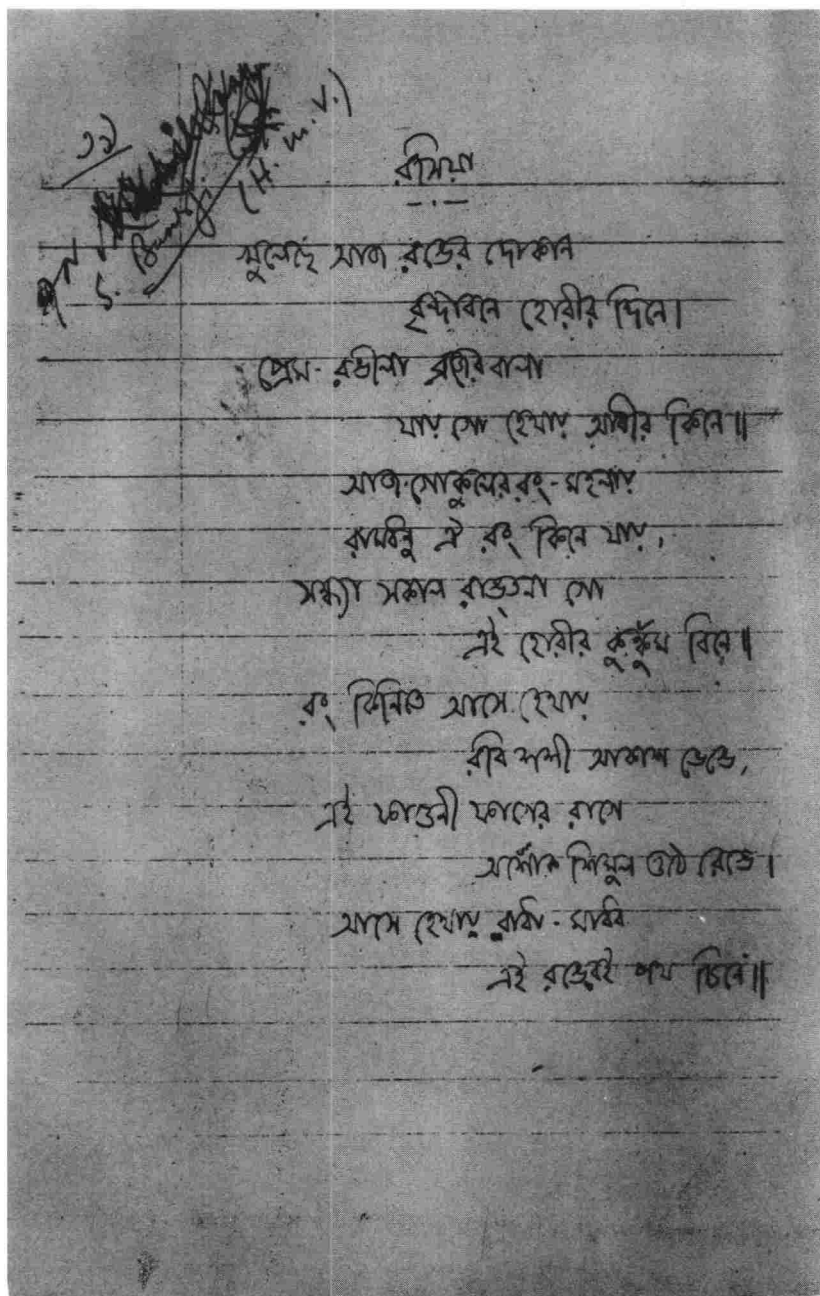 ১১
S. Banerji (H. M. V.)
রসিয়া
খুলেছে আজ রঙের দোকান
বৃন্দাবনে হোরীর দিনে।
প্রেম-রঙীলা ব্রজের বালা
যায় গো হেথায় আবীর কিনে॥
আজ গোকুলের রং-মহলায়
রামধনু ঐ রং কিনে যায়,
সন্ধ্যা সকাল রাঙতনা গো
এই হোরীর কুঙ্কুম বিনে॥
রং কিনিতে আসে হেথায়
রবি শশী আকাশ ভেঙে,
এই ফাগুনী ফাগের রাগে
অশোক শিমুল ওঠে রেঙে।
আসে হেথায় রাধা-মাধব
এই রঙেরই পথ চিনে॥